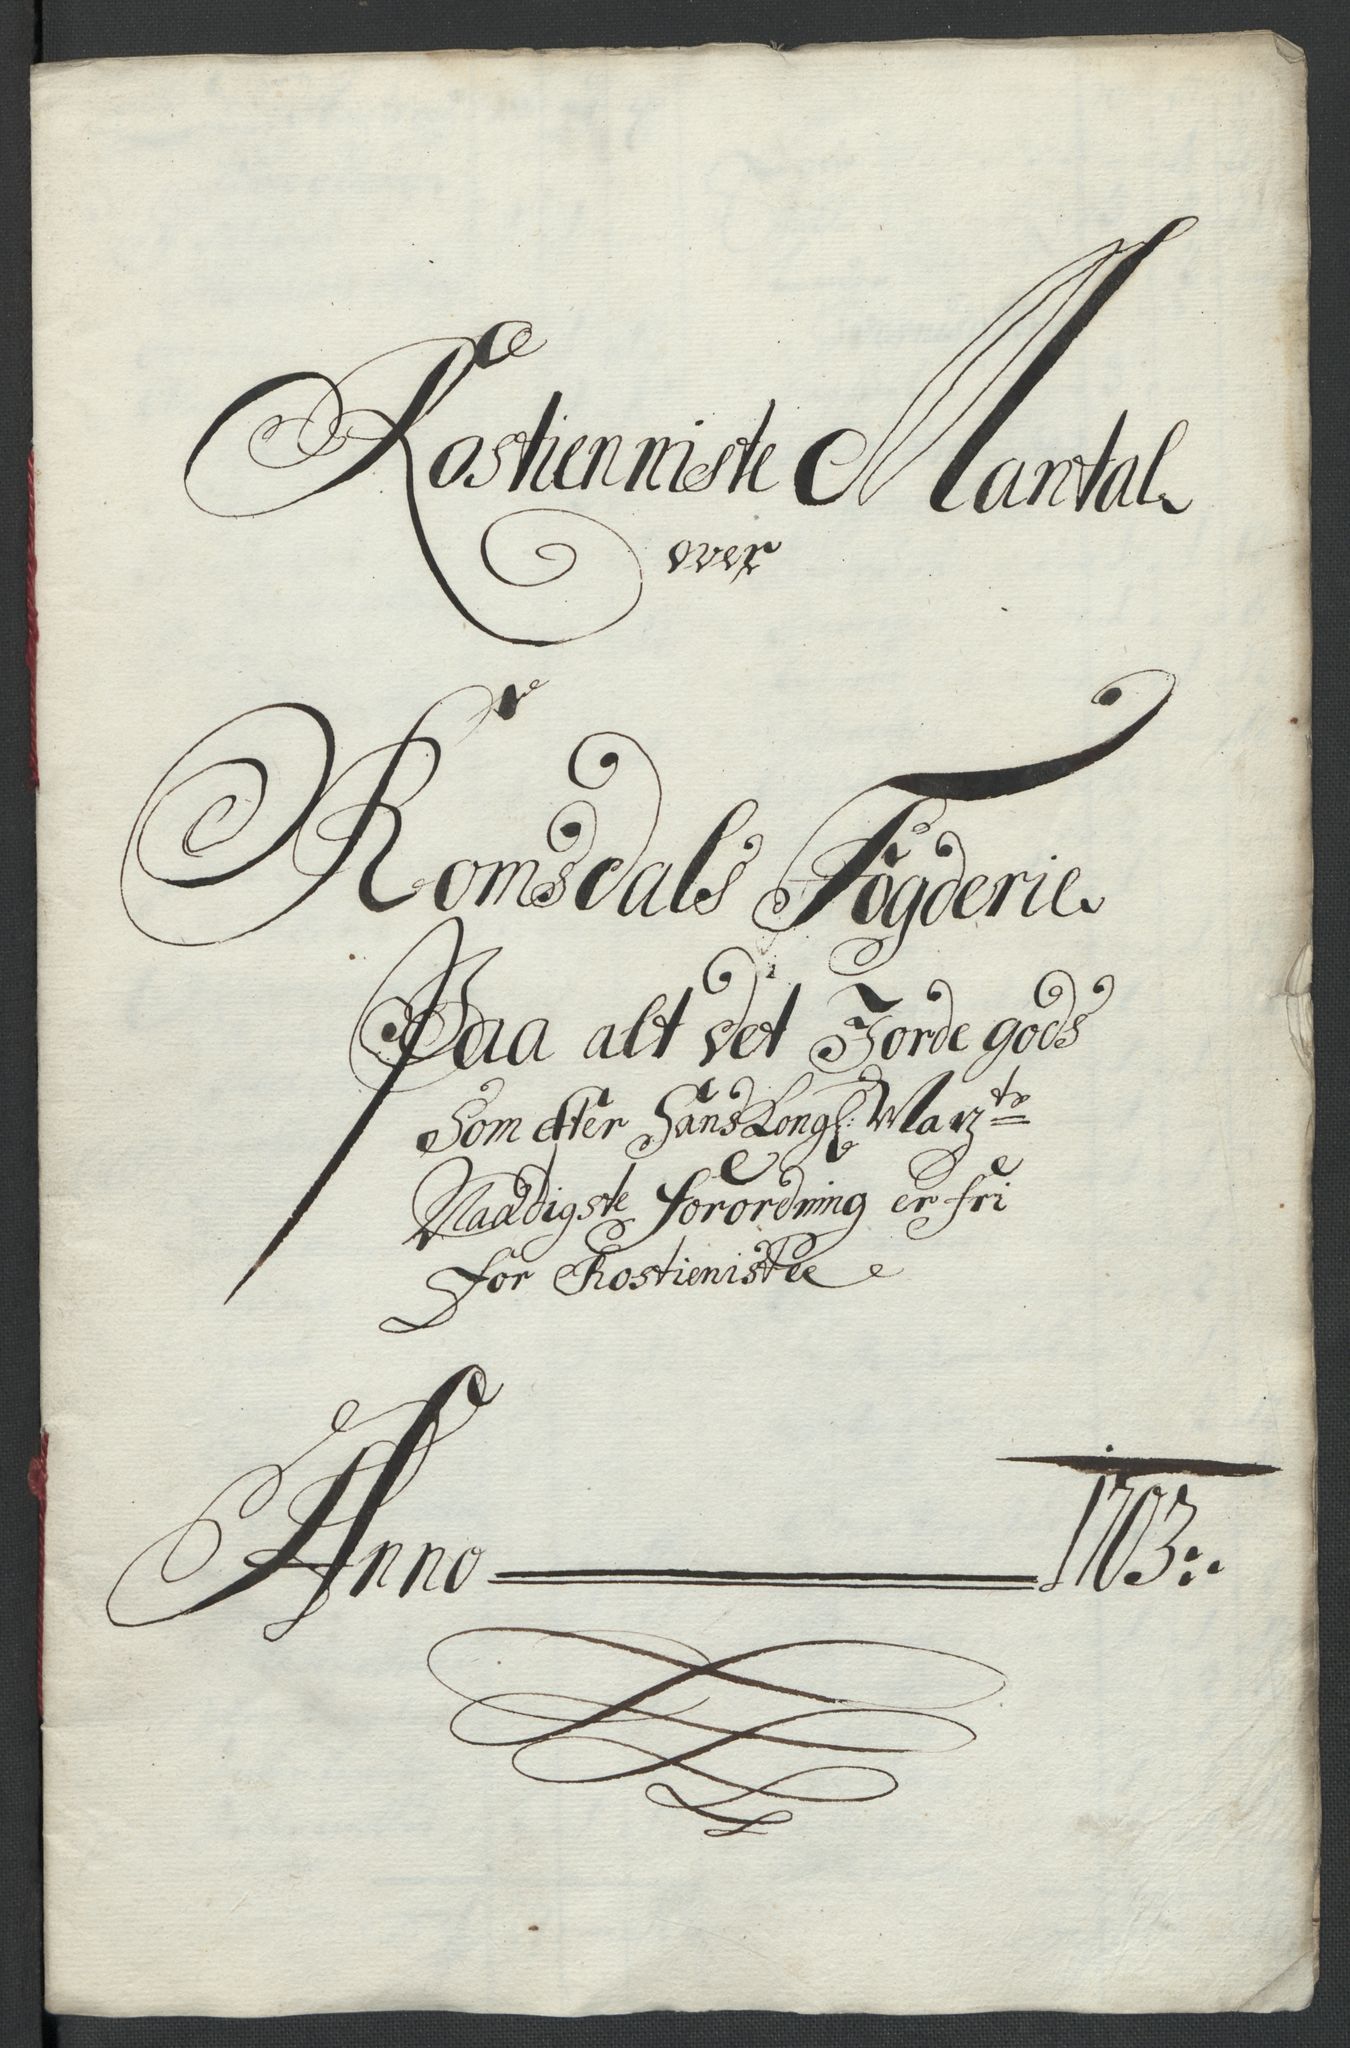 Rostienniste Mantal
over
Romsdals Fogderie
Paa alt det Jorde gods
Som efter Hans Kongl: Mayts
Naadigste forordning er fri
for Rostieniste
Anno 1703